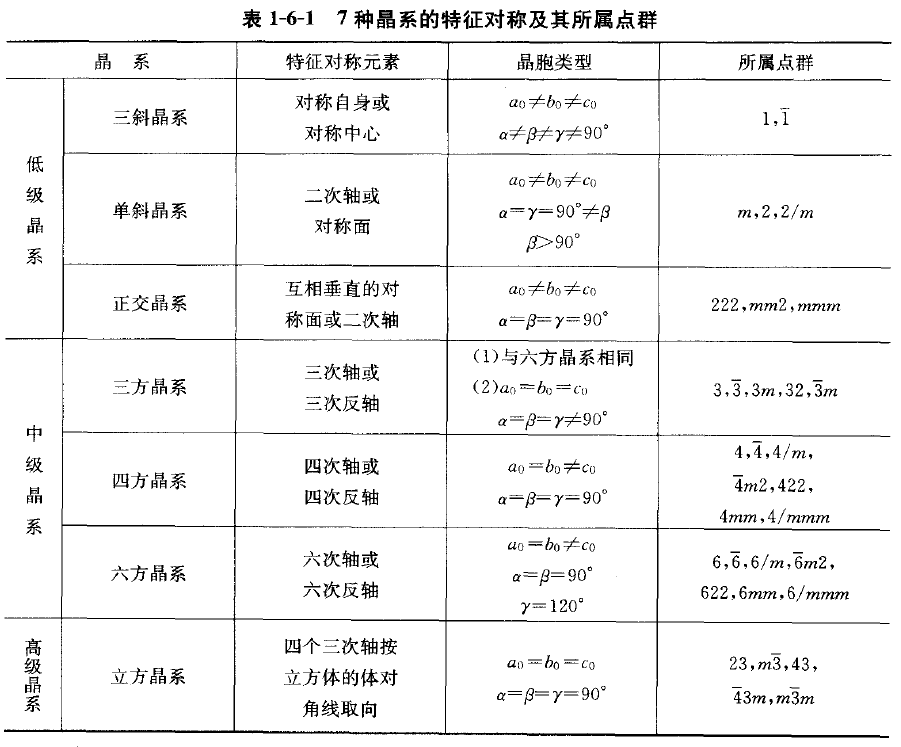 表 1-6-1 7 种晶系的特征对称及其所属点群
晶 系 特征对称元素 晶胞类型 所属点群
低级晶系
三斜晶系
对称自身或
对称中心
a₀≠b₀≠c₀
α≠β≠γ≠90°
1,1̅
单斜晶系
二次轴或
对称面
a₀≠b₀≠c₀
α=γ=90°≠β
β>90°
m,2,2/m
正交晶系
互相垂直的对
称面或二次轴
a₀≠b₀≠c₀
α=β=γ=90°
222,mm2,mmm
中级晶系
三方晶系
三次轴或
三次反轴
(1)与六方晶系相同
(2)a₀=b₀=c₀
α=β=γ≠90°
3,3̅,3m,32,3̅m
四方晶系
四次轴或
四次反轴
a₀=b₀≠c₀
α=β=γ=90°
4,4̅,4/m,
4̅m2,422,
4mm,4/mmm
六方晶系
六次轴或
六次反轴
a₀=b₀≠c₀
α=β=90°
γ=120°
6,6̅,6/m,6̅m2,
622,6mm,6/mmm
高级晶系
立方晶系
四个三次轴按
立方体的体对
角线取向
a₀=b₀=c₀
α=β=γ=90°
23,m3̅,43,
4̅3m,m3̅m